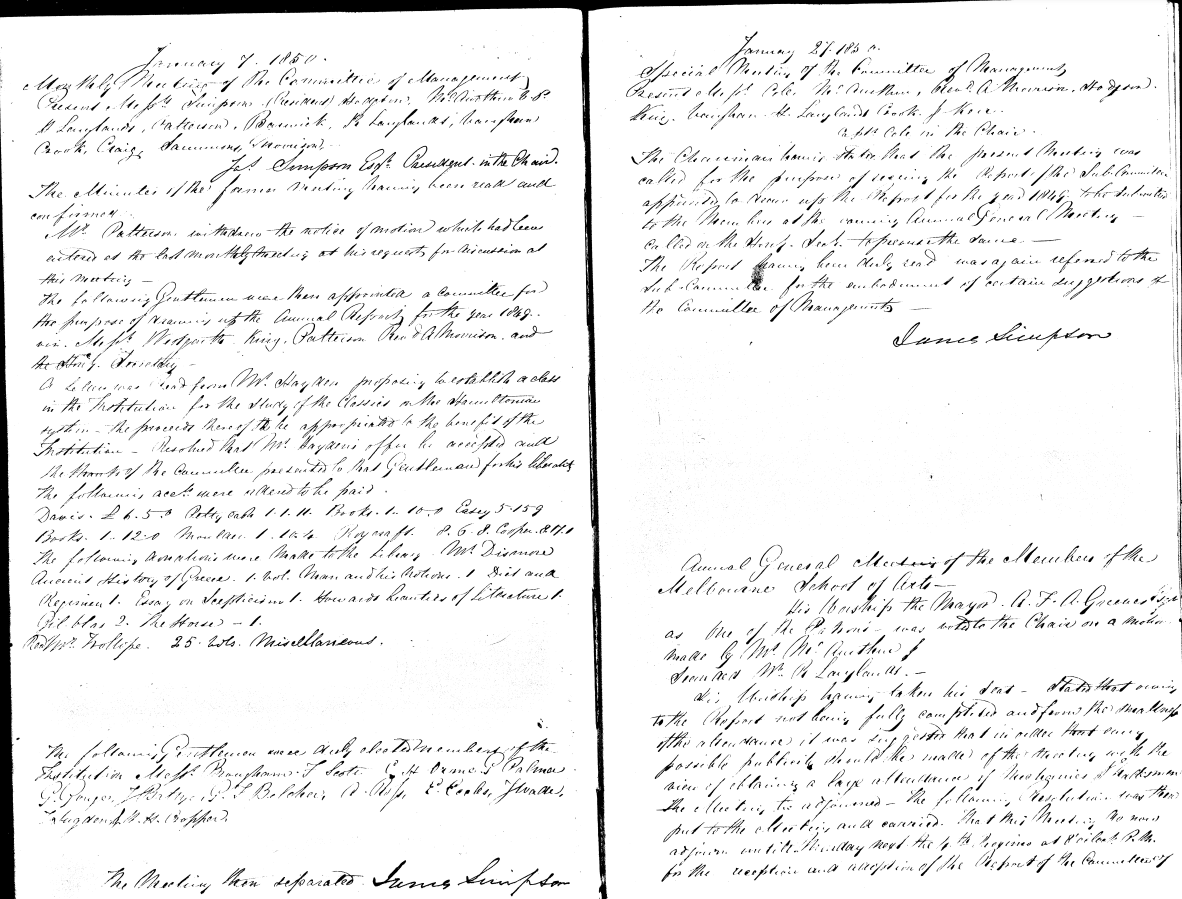 January 7. 1850.
Monthly Meeting of the Committee of Management
Present Messrs Simpson (President) Hodgson, McArthur
H Langlands, Patterson, Barwick, R Langlands, Vaughan
Crook, Craig, Sammons, Morrison.
Jas. Simpson Esqr. President in the Chair.
The Minutes of the former Meeting having been read and
confirmed
Mr. Patterson withdrew the notice of motion which had been
entered at the last monthly Meeting at his request for discussion at
this meeting —
The following Gentlemen were then appointed a committee for
the purpose of drawing up the Annual Report for the year 1849.
viz. Messrs King, Patterson Revd A Morrison, and
the Hony. Secretary —
A Letter was read from Mr. Hayden proposing to establish a class
in the Institution for the study of the Classics on the Hamiltonian
system — the proceeds thereof to be appropriated to the benefit of the
Institution — Resolved that Mr. Hayden's offer be accepted and
the thanks of the Committee presented to that Gentleman for his liberality
The following accts. were ordered to be paid.
Davis. £6.5.0 Petty cash 1.1.11. Books. 1. 10.0 5.15.9
Books. 1. 12.0 Moulner 1. Roycraft. 8. 6. 8. Cooper.
The following donations were made to the Library. Mr. Dismore
Ancient History of Greece. 1. vol. Man and his Motions. 1 Diet and
Regimen 1. Essay on Scepticism 1. Howards beauties of Literature 1.
Gil blas 2. The Horse — 1.
Revd Mr. Trollope. 25 vols. Miscellaneous.
The following Gentlemen were duly elected members of the
Institution Messrs. Brougham. T Scott. C H Orme. P Palmer
G. Bolcher, D. Ross, E Cooke, J Wade,
Langdon & H. H. Cropper.
The Meeting then separated James Simpson
January 27. 1850.
Special Meeting of the Committee of Management
Present Messrs. Cole, McArthur, Revd. A Morrison, Hodgson.
King. Vaughan. H. Langlands Crook & Kerr.
Capt. Cole in the Chair.
The Chairman having stated that the present Meeting was
called for the purpose of receiving the Report of the Sub-Committee
appointed to draw up the Report for the year 1849 to be submitted
to the Members at the coming Annual General Meeting —
called on the Hony. Secy. to peruse the same. —
The Report having been duly read was again referred to the
Sub-Committee for the embodiment of certain suggestions of
the Committee of Management —
James Simpson
Annual General Meeting of the Members of the
Melbourne School of Arts —
His Worship the Mayor. A. F. A. Greeves Esqr
as One of the Patrons — was voted to the Chair on a motion
made by Mr. McArthur &
Seconded Mr. R Langlands. —
His Worship having taken his Seat — Stated that owing
to the Report not being fully completed and from the smallness
of the attendance it was suggested that in order that every
possible publicity should be made of the Meeting with the
view of obtaining a large attendance of Mechanics & tradesmen
the Meeting be adjourned — The following Resolution was then
put to the Meeting and carried. That this Meeting do now
adjourn until Monday next the 4th Proximo at 8 o'clock P.M.
for the reception and adoption of the Report of the Committee of